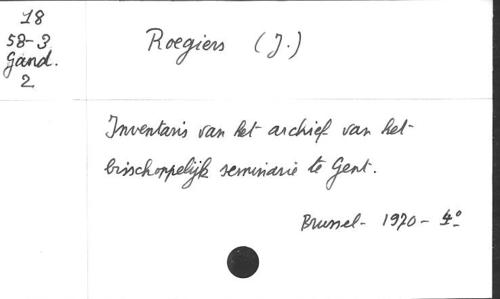 18
58-3
Gand.
2
Roegiers (J.)
Inventaris van het archief van het
bisschoppelijk seminarie te Gent.
Brussel - 1970 - 4°